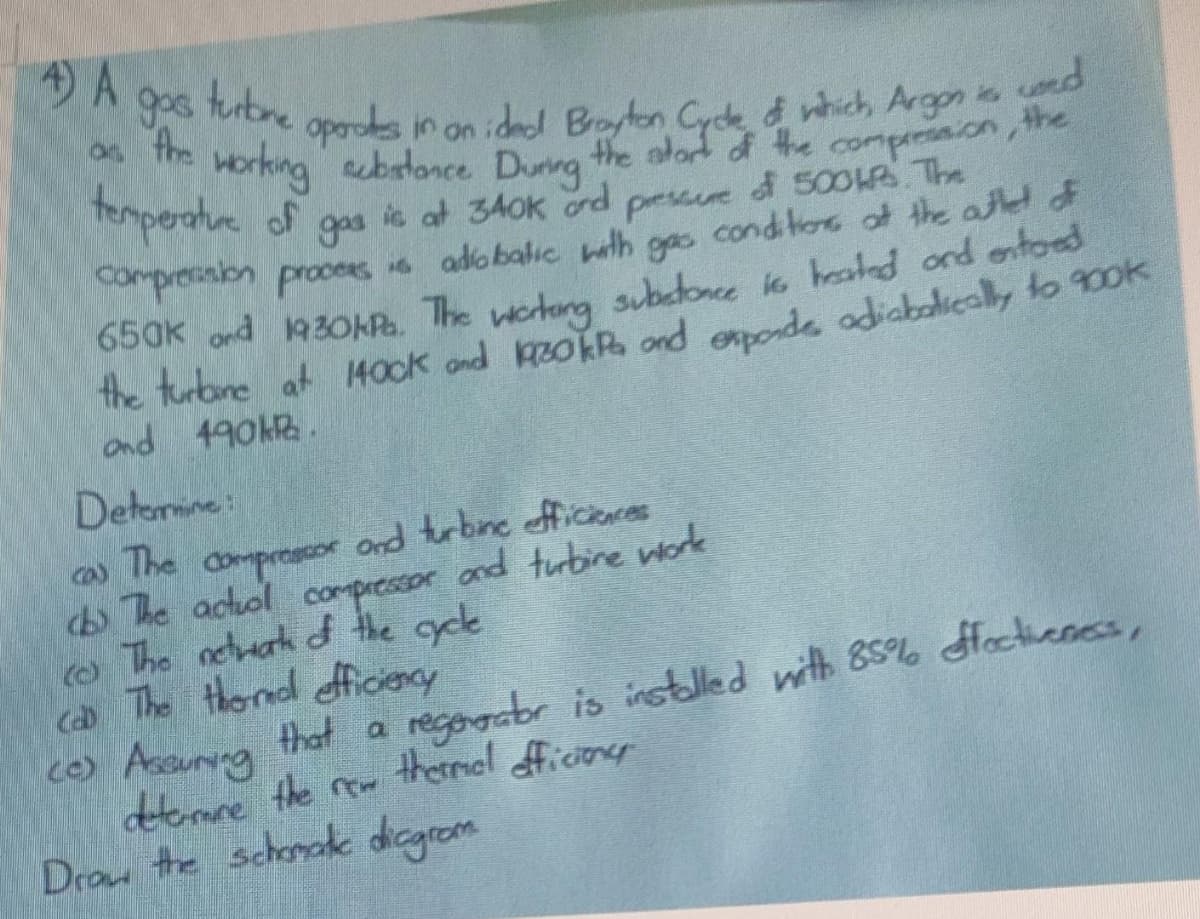 4) A gas turbine operates in an ideal Brayton Cycle of which, Argon is used
as the working substance. During the start of the compression, the
temperature of gas is at 340K and pressure of 500kPa. The
compression process is adiabatic with gas conditions at the outlet of
650K and 1930kPa. The working substance is heated and entered
the turbine at 1400K and 1930kPa and expands adiabatically to 900K
and 490kPa.
Determine:
(a) The compressor and turbine efficiences
(b) The actual compressor and turbine work
(c) The network of the cycle
(d) The thermal efficiency
(e) Assuming that a regenerator is installed with 85% effectiveness,
determine the new thermal efficiency
Draw the schematic diagram